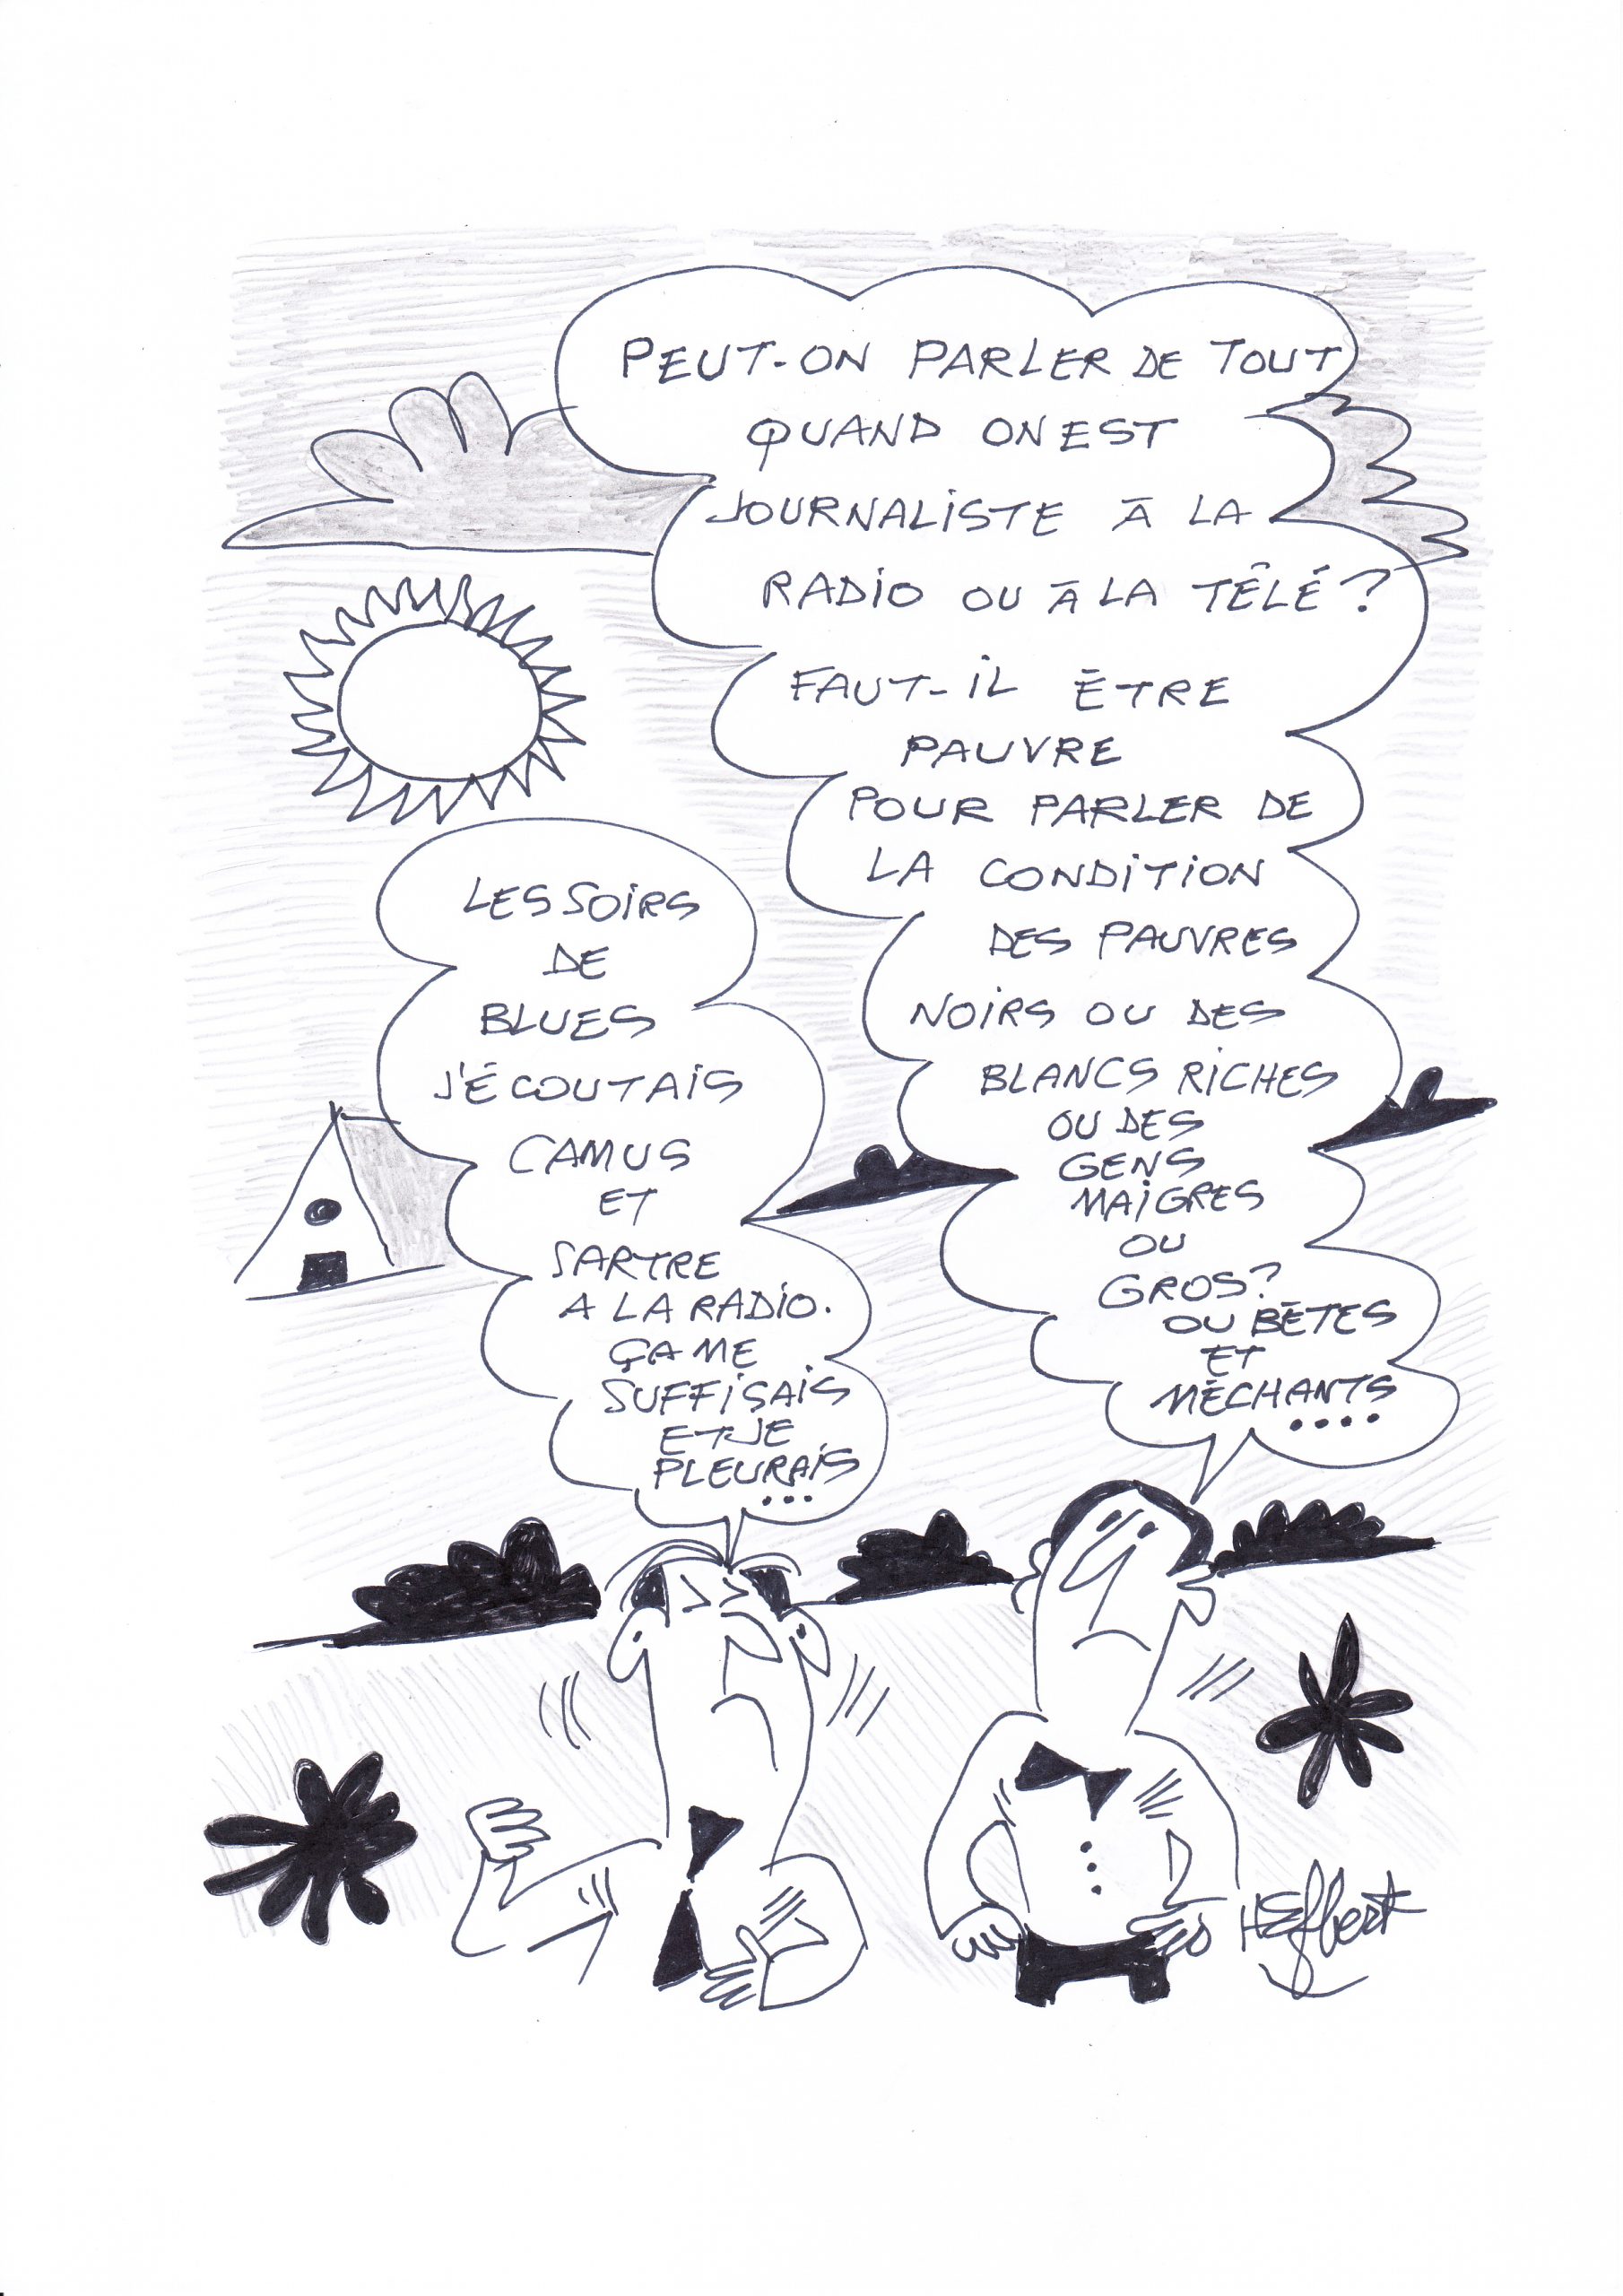 PEUT-ON PARLER DE TOUT
QUAND ON EST
JOURNALISTE À LA
RADIO OU À LA TÊLÉ?
FAUT-IL ÊTRE
PAUVRE
POUR PARLER DE
LA CONDITION
DES PAUVRES
NOIRS OU DES
BLANCS RICHES
OU DES
GENS
MAIGRES
OU
GROS?
OU BÊTES
ET
MÉCHANTS
....
LES SOIRS
DE
BLUES
J'ÉCOUTAIS
CAMUS
ET
SARTRE
A LA RADIO.
ÇA ME
SUFFISAIS
ET JE
PLEURAIS
...